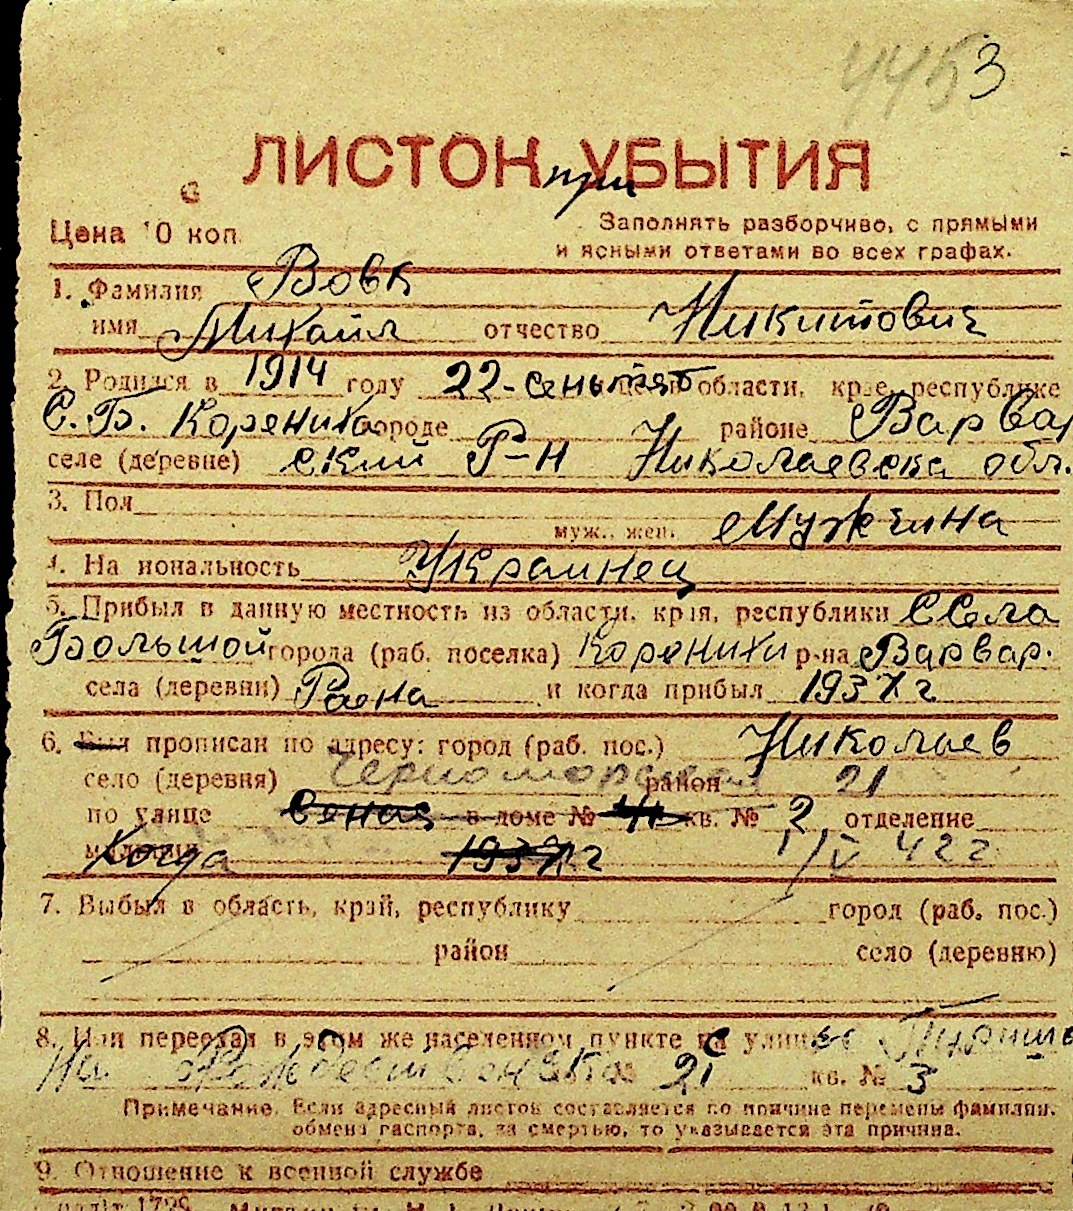 4453
ЛИСТОК при УБЫТИЯ
Цена 10 коп.
Заполнять разборчиво, с прямыми
и ясными ответами во всех графах.
1. Фамилия Вовк
имя Михаил отчество Никитович
2. Родился в 1914 году 22- области, крае, республике
С. Б. Корениха городе районе Варвар
селе (деревне) ский Р-н Николаевска обл.
3. Пол
муж., жен. Мужчина
4. Национальность Украинец
5. Прибыл в данную местность из области, края, республики Села
Большой города (раб. поселка) Коренихи р-на Варвар.
села (деревни) Раена и когда прибыл 1937 г
6. Был прописан по адресу: город (раб. пос.) Николаев
село (деревня) Черноморская район 21
по улице в доме № кв. № 2 отделение
милиции Когда 1937 г 1/V 42 г
7. Выбыл в область, край, республику город (раб. пос.)
район село (деревню)
8. Или переехал в этом же населенном пункте на улицу
На Рождественска 21 кв. № 3
Примечание. Если адресный листок составляется по причине перемены фамилии,
обмена паспорта, за смертью, то указывается эта причина.
9. Отношение к военной службе